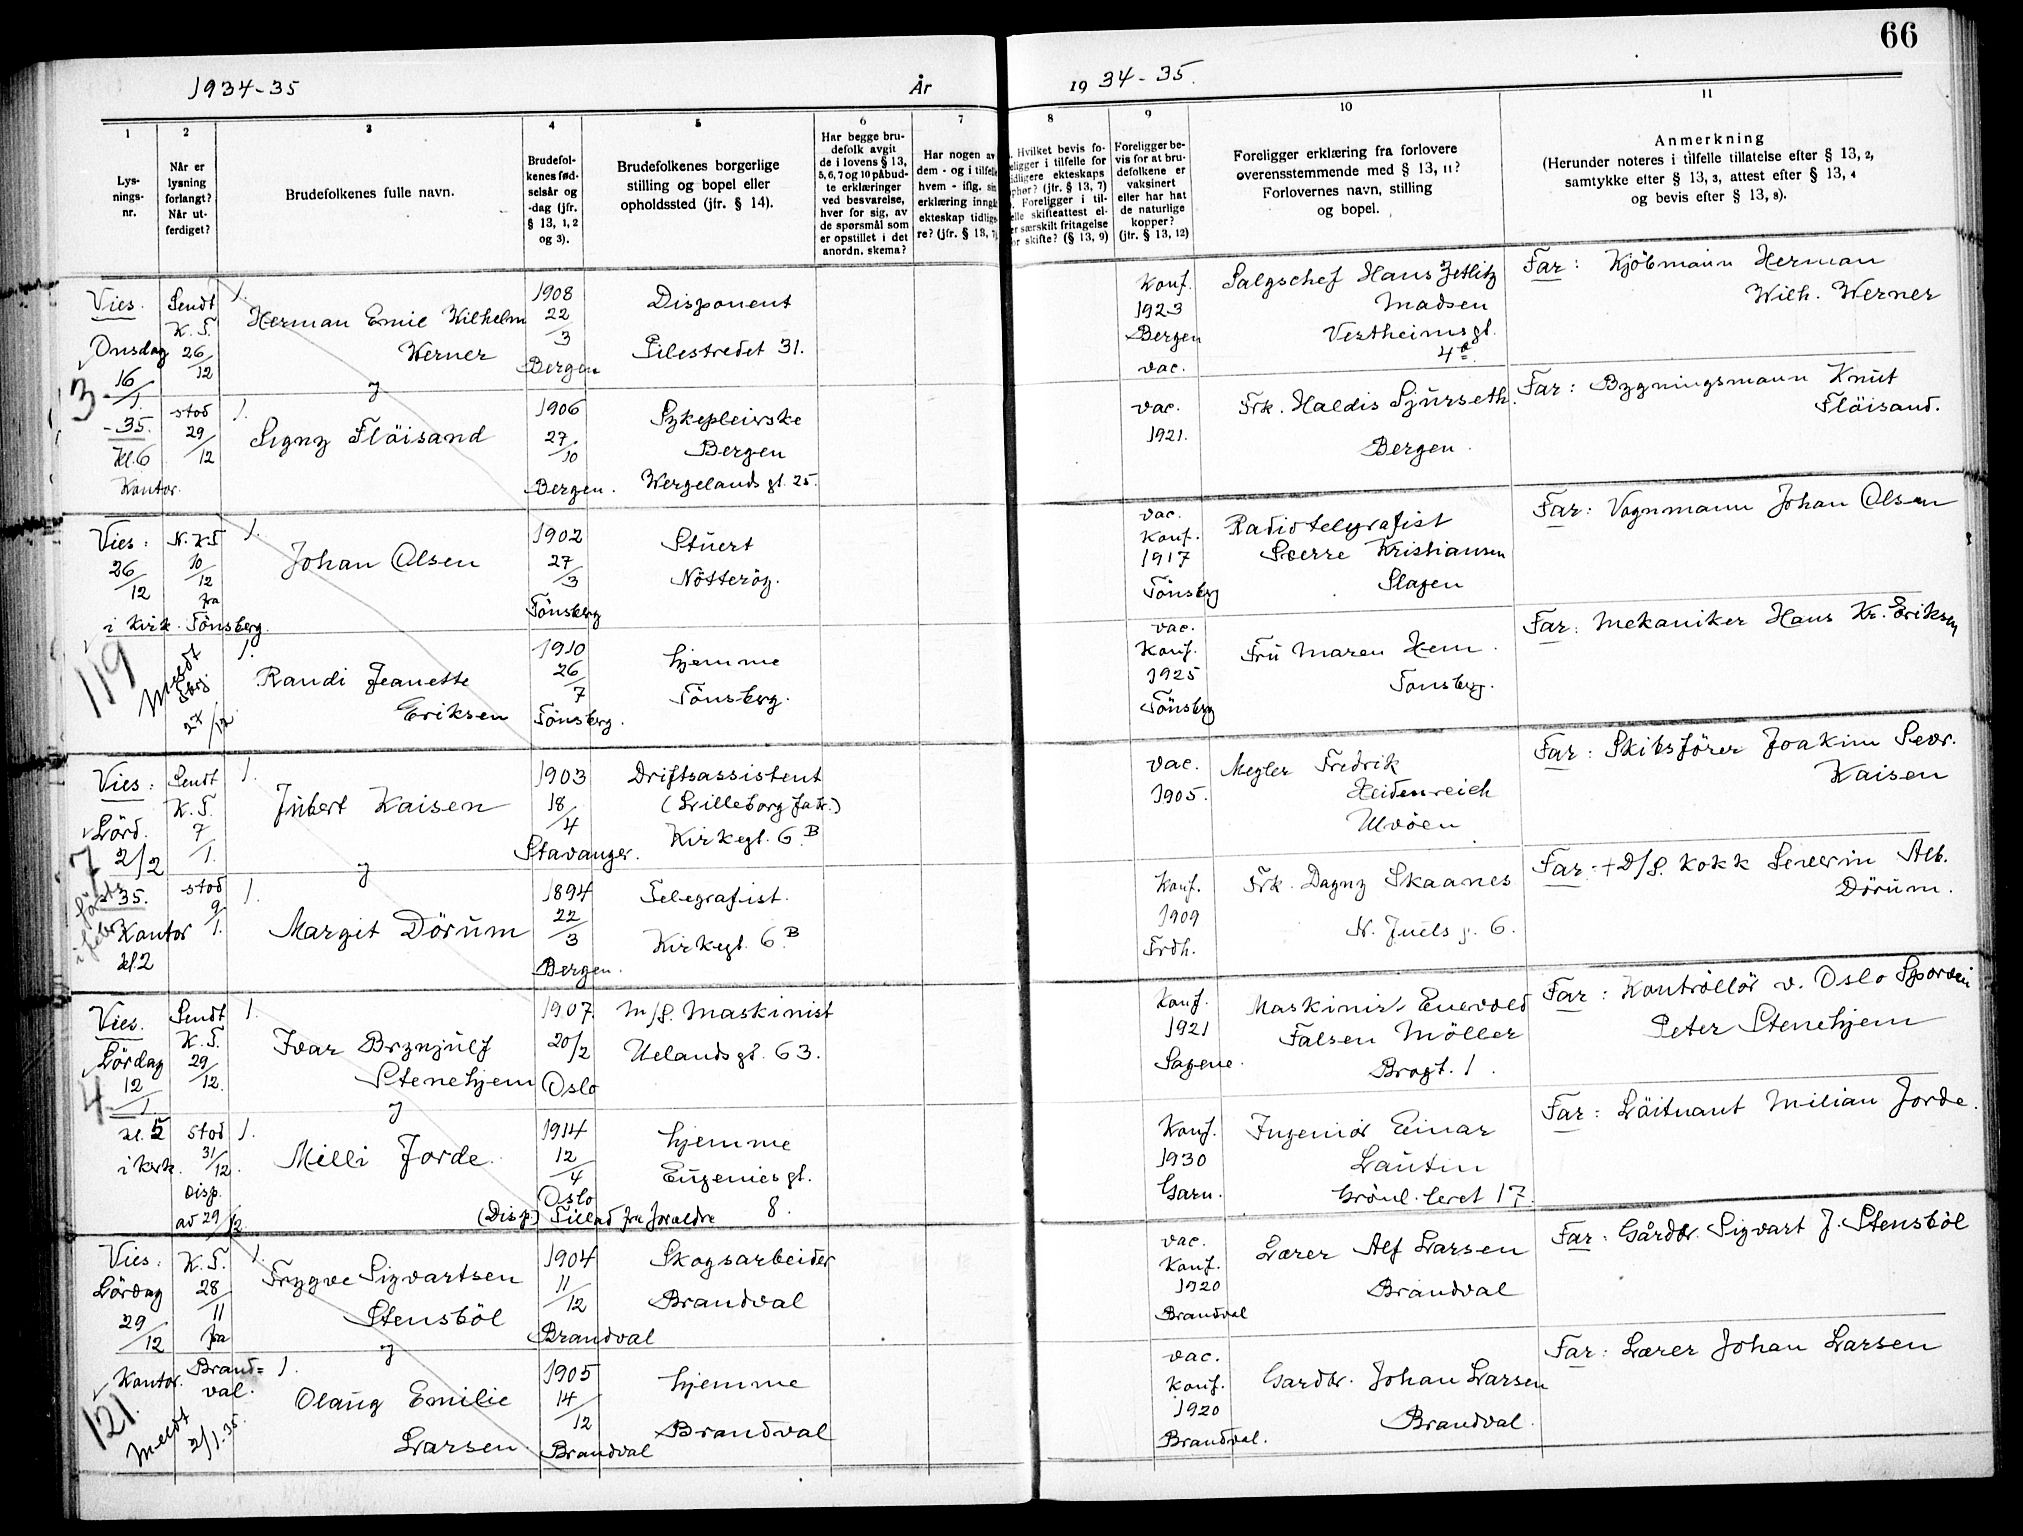 66
1934-35
År
19 34-35.
1
Lys-
nings-
nr.
2
Når er
lysning
forlangt?
Når ut-
ferdiget?
3
Brudefolkenes fulle navn.
4
Brudefol-
kenes fød-
selsår og
-dag (jfr.
§ 13, 1, 2
og 3).
5
Brudefolkenes borgerlige
stilling og bopel eller
opholdssted (jfr. § 14).
6
Har begge bru-
defolk avgit
de i lovens § 13,
5, 6, 7 og 10 påbud-
te erklæringer
ved besvarelse,
hver for sig, av
de spørsmål som
er opstillet i det
anordn. skema?
7
Har nogen av
dem - og i tilfelle
hvem - iflg. sin
erklæring inngå
ekteskap tidlig
re? (jfr. § 13, 7)
8
Hvilket bevis fo-
religger i tilfelle for
tidligere ekteskaps
ophør? (jfr. § 13, 7)
Foreligger i til-
felle skifteattest el-
er særskilt fritagelse
for skifte? (§ 13, 9)
9
Foreligger be-
vis for at bru-
defolkene er
vaksinert
eller har hat
de naturlige
kopper?
(jfr. § 13, 12)
10
Foreligger erklæring fra forlovere
overensstemmende med § 13, 11?
Forlovernes navn, stilling
og bopel.
11
Anmerkning
(Herunder noteres i tilfelle tillatelse efter § 13, 2,
samtykke efter § 13, 3, attest efter § 13, 4
og bevis efter § 13, 8).
Vies.
Onsdag
16/1.
-35.
Kl. 6
Kontor.
3
Sendt
K. T.
26/12
stod
29/12
1.
Herman Emil Wilhelm
Werner
1908
22/3
Bergen
Disponent
Pilestredet 31.
Konf.
1923
Bergen
vac.
Salgschef Hans Jetlitz
Madsen
Vestheimsgt.
4a.
Far: Kjöbmann Herman
Wilh. Werner
og
1.
Signy Flöisand
1906
27/10
Bergen.
Sykepleirske
Bergen
Wergelands gt. 25.
vac.
1921.
Frk. Haldis Sjurseth.
Bergen.
Far: Bygningsmann Knut
Flöisand.
Vies:
26/12
i kirk.
119
Meldt
Tbrg
27/12
N. K. T
10/12
fra
Tönsberg.
1.
Johan Olsen
1902
27/3
Tönsberg
Stuert
Nötteröy.
vac.
Konf.
1917
Tönsberg
Radiotelegrafist
Sverre Kristiansen
Slagen
Far: Vognmann Johan Olsen
1.
Randi Jeanette
Eriksen
1910
26/7
Tönsberg.
hjemme
Tönsberg.
vac.
Konf.
1925
Tönsberg
Fru Maren Hem.
Tönsberg.
Far: Mekaniker Hans Kr. Eriksen
Vies:
Lörd.
2/2
35.
Kontor
kl. 2
7
föres
i febr
Sendt
K. T.
7/1.
stod
9/1.
1.
Jubert Kaisen
1903
18/4
Stavanger.
Driftsassistent
(Lilleborg fabr.)
Kirkegt. 6 B
vac.
1905.
Megler Fredrik
Heidenreich
Ulvöen
Far: Skibsförer Joakim Sevr.
Kaisen
og
1.
Margit Dörum
1894
22/3
Bergen.
Telegrafist.
Kirkegt. 6 B
Konf.
1909
Frdh.
Frk. Dagny Skaanes
N. Juels g. 6.
Far: + D/S. Kokk Severin Alb.
Dörum.
Vies.
Lördag
12/1
kl. 5
i kirk.
4
Sendt
K. T.
29/12.
stod
31/12.
Disp.
av 29/12
1.
Ivar Brynjulf
Stenehjem
1907.
20/2
Oslo
M/S. Maskinist
Uelandsgt. 63.
Konf.
1921
Sagene.
Maskinist Enevold
Falsen Möller
Brogt. 1.
Far: Kontrollör v. Oslo Sporvei
Peter Stenehjem
og
1.
Milli Jorde.
1914
12/4
Oslo
(Disp) Tillad fra foreldre
hjemme
Eugeniesgt.
8.
Konf.
1930
Garn.
Ingeniör Einar
Lautin
Grönl. leret 17.
Far: Löitnant Milian Jorde.
Vies:
Lördag
29/12
Kontor.
121.
meldt
2/1.35.
K. T.
28/11
fra
Brand=
val.
1.
Trygve Sigvartsen
Stensböl
1904
11/12
Brandval
Skogsarbeider
Brandval
vac.
Konf.
1920
Brandval
Lærer Alf Larsen
Brandval
Far: Gårdbr. Sigvart J. Stensböl
og
1.
Olaug Emilie
Larsen.
1905
14/12
Brandval
hjemme
Brandval
vac.
Konf.
1920
Brandval.
Gardbr. Johan Larsen
Brandval.
Far: Lærer Johan Larsen